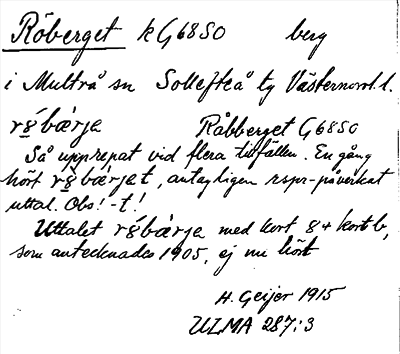 Röberget k G68SO berg
i Multrå sn Sollefteå tg Västernorrl. l.
rǵbærje Råbberget G68SO
Så upprepat vid flera tillfällen. En gång
hört rǵbærjet, antagligen rspr-påverkat
uttal. Obs! -t!
Uttalet rǵbærje med kort g + kort b,
som antecknades 1905, ej nu hört
H. Geijer 1915
ULMA 287:3